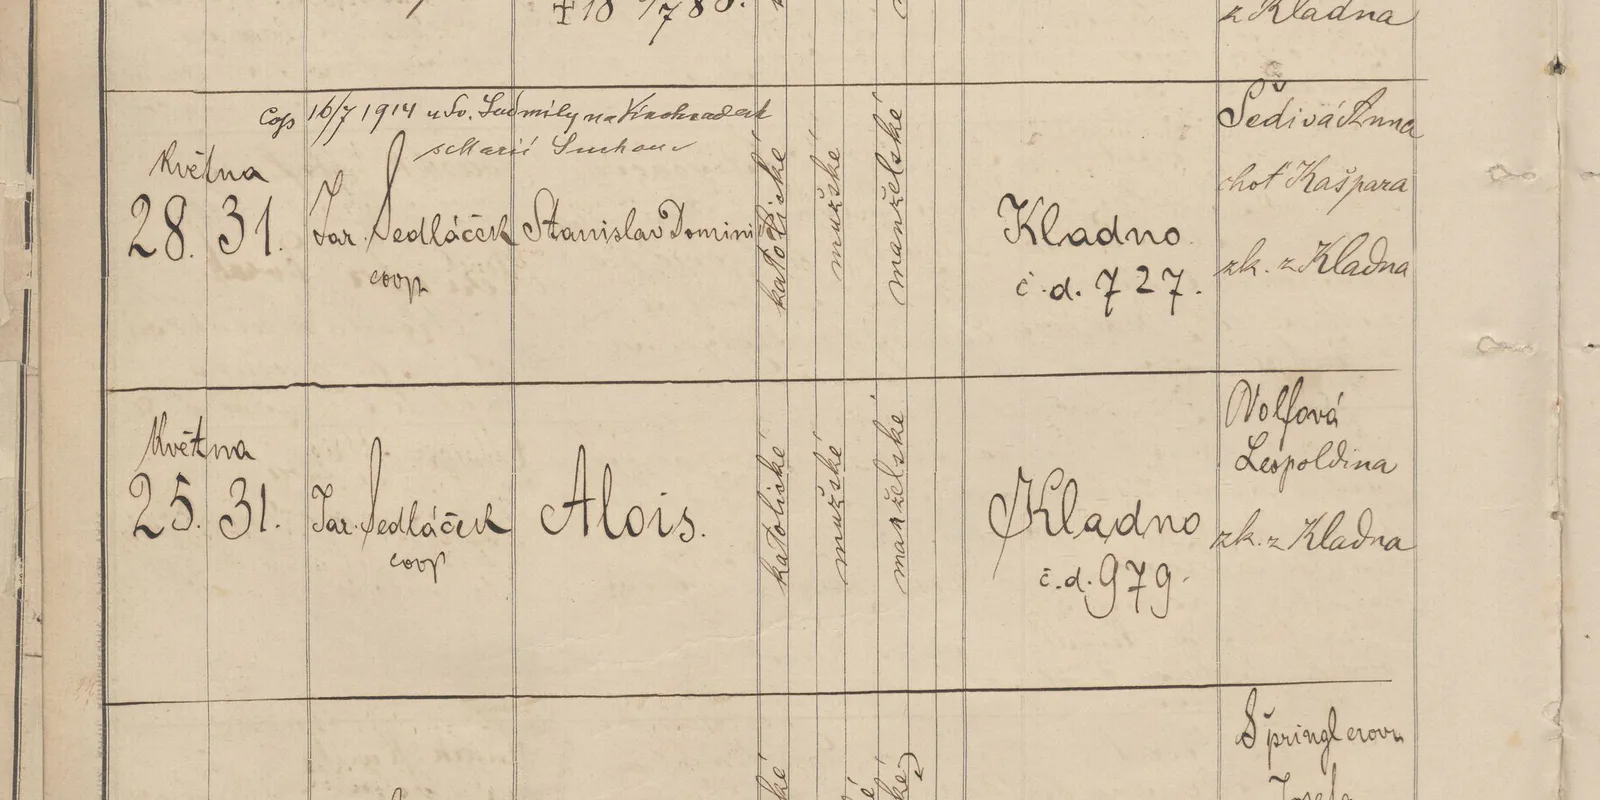 z Kladna
Cop 16/7 1914 u Sv. Ludmily na Vinohradech
s Marií
Května
28. 31.
Jar. Sedláček
coop
Stanislav Domini
katolické
mužské
manželské
Kladno
č.d. 727.
Šedivá Anna
choť Kašpara
zk. z Kladna
Května
25. 31.
Jar. Sedláček
coop
Alois.
katolické
mužské
manželské
Kladno
č.d. 979.
Volfová
Leopoldina
zk. z Kladna
Špringlerova
Josefa